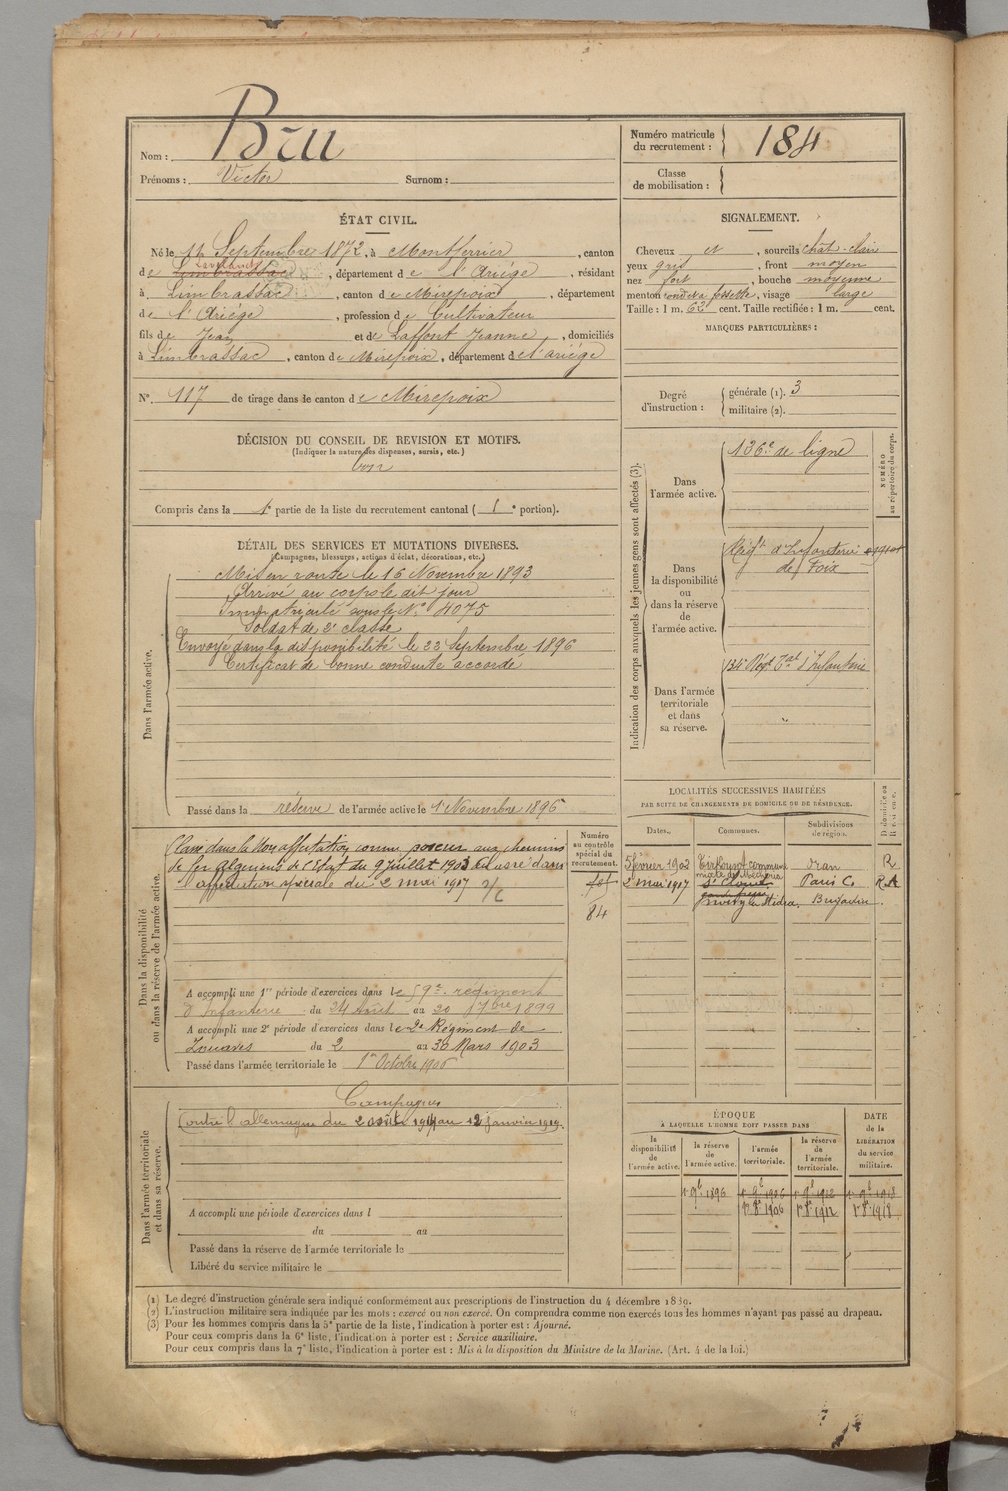 Nom : Bru
Prénoms : Victor Surnom :
Numéro matricule du recrutement : 184
Classe de mobilisation :
ÉTAT CIVIL.
Né le 11 Septembre 1872, à Montferrier, canton
de Lavelanet, département de l'Ariège, résidant
à Limbrassac, canton de Mirepoix, département
de l'Ariège, profession de Cultivateur
fils de Jean et de Laffont Jeanne, domiciliés
à Limbrassac, canton de Mirepoix, département de l'ariège
N° 117 de tirage dans le canton de Mirepoix
SIGNALEMENT.
Cheveux, sourcils chât-clair
yeux gris, front moyen
nez fort, bouche moyenne
menton rond et à fossette, visage large
Taille : 1 m. 62 cent. Taille rectifiée : 1 m. cent.
MARQUES PARTICULIÈRES :
Degré d'instruction : générale (1). 3
militaire (2).
DÉCISION DU CONSEIL DE REVISION ET MOTIFS.
(Indiquer la nature des dispenses, sursis, etc.)
bon
Compris dans la 1e partie de la liste du recrutement cantonal (1e portion).
DÉTAIL DES SERVICES ET MUTATIONS DIVERSES.
(Campagnes, blessures, actions d'éclat, décorations, etc.)
Dans l'armée active.
Mis en route le 16 Novembre 1893
Arrivé au corps le dit jour
Immatriculé sous le N° 4075
Soldat de 2e classe
Envoyé dans la disponibilité le 23 Septembre 1896
Certificat de bonne conduite accordé
Passé dans la réserve de l'armée active le 1er Novembre 1896
Indication des corps auxquels les jeunes gens sont affectés (3).
NUMÉRO au répertoire du corps.
Dans l'armée active.
136e de ligne
Dans la disponibilité ou dans la réserve de l'armée active.
Régt d'Infanterie
de Foix
Dans l'armée territoriale et dans sa réserve.
134e Régt Tal d'Infanterie
LOCALITÉS SUCCESSIVES HABITÉES
PAR SUITE DE CHANGEMENTS DE DOMICILE OU DE RÉSIDENCE.
Dates. Communes. Subdivisions de région. D domicile ou R résidence.
5 février 1902 commune mixte de Mécheria Oran R
2 mai 1917 St Cloud Paris C. R
Juvisy
Dans la disponibilité ou dans la réserve de l'armée active.
Numéro au contrôle spécial du recrutement.
Classé dans la Non affectation comme poseur aux chemins
de fer Algériens de l'Etat du 9 Juillet 1903 Classé dans
affectation spéciale du 2 mai 1917
84
A accompli une 1re période d'exercices dans le 59e régiment
d'Infanterie du 24 Août au 20 7bre 1899
A accompli une 2e période d'exercices dans le 2e Régiment de
Zouaves du 2 au 30 Mars 1903
Passé dans l'armée territoriale le 1er Octobre 1906
Dans l'armée territoriale et dans sa réserve.
Campagnes
Contre l'allemagne du 2 août 1914 au 12 janvier 1919.
A accompli une période d'exercices dans l
du au
Passé dans la réserve de l'armée territoriale le
Libéré du service militaire le
ÉPOQUE
À LAQUELLE L'HOMME DOIT PASSER DANS
la disponibilité de l'armée active. la réserve de l'armée active. l'armée territoriale. la réserve de l'armée territoriale.
DATE de la LIBÉRATION du service militaire.
1er 9b 1896 1er 9b 1906 1er 9b 1912 1er 9b 1918
1er 8b 1906 1er 8b 1912 1er 8b 1918
(1) Le degré d'instruction générale sera indiqué conformément aux prescriptions de l'instruction du 4 décembre 1889.
(2) L'instruction militaire sera indiquée par les mots : exercé ou non exercé. On comprendra comme non exercés tous les hommes n'ayant pas passé au drapeau.
(3) Pour les hommes compris dans la 5e partie de la liste, l'indication à porter est : Ajourné.
Pour ceux compris dans la 6e liste, l'indication à porter est : Service auxiliaire.
Pour ceux compris dans la 7e liste, l'indication à porter est : Mis à la disposition du Ministre de la Marine. (Art. 4 de la loi.)